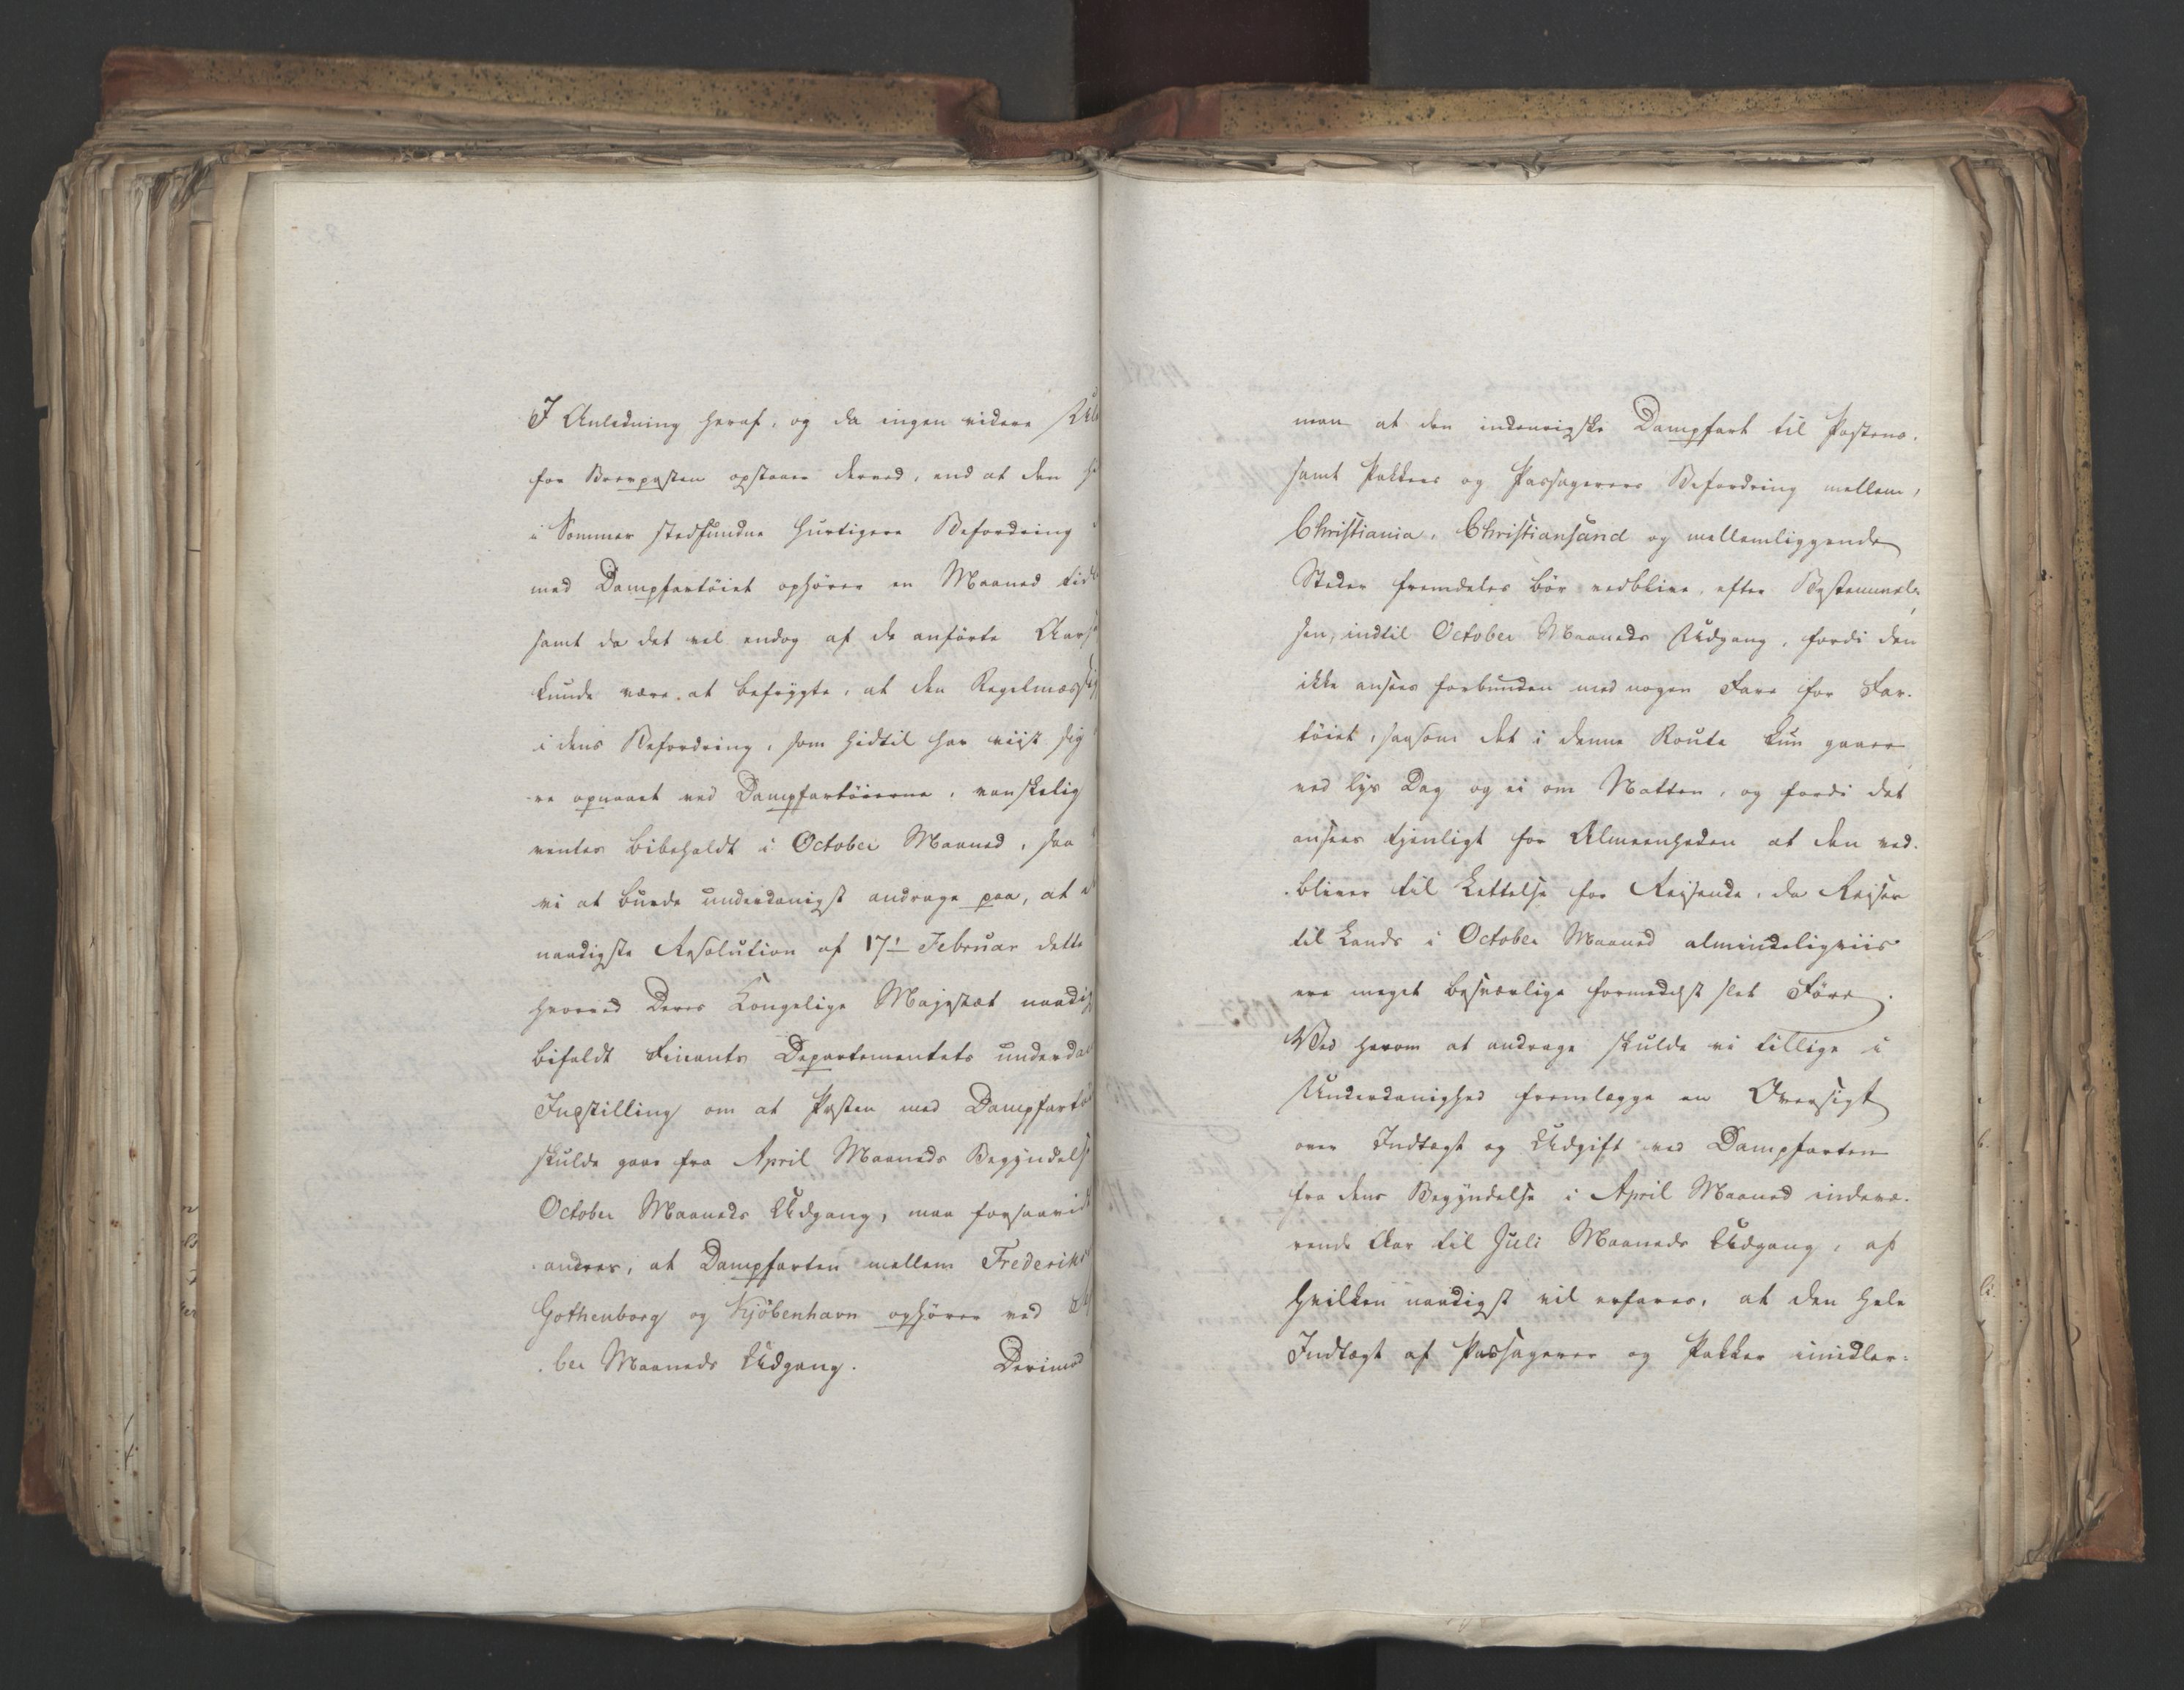 I Anledning heraf, og da ingen videre
for Brevposten opstaaer derved, end at den
i Sommer stedfundne hurtigere Befordring
med Dampfartöiet ophörer en Maaned
samt da det vel endog af de anförte
kunde være at befrygte, at den Regelmæssig
i dens Befordring, som hidtil har viist sig
re opnaaet ved Dampfartöierne, vanskelig
ventes bibeholdt i October Maaned, saa
vi at burde underdanigst andrage paa, at
naadigste Resolution af 17de Februar dette
hvorved Deres Kongelige Majestæt naadig
bifaldt Finants Departementets underda
Indstilling om at Posten med Dampfartö
skulde gaae fra April Maaneds Begyndelse
October Maaneds Udgang, maa forsaavidt
andres, at Dampfarten mellem Frederiks
Gothenborg og Kjöbenhavn ophörer ved
ber Maaneds Udgang. Derimod
man at den indenrigske Dampfart til Postens,
samt Pakkers og Passagerers Befordring mellem,
Christiania, Christiansand og mellemliggende
Steder fremdeles bör vedblive, efter Bestemmel-
sen, indtil October Maaneds Udgang, fordi den
ikke ansees forbunden med nogen Fare for Far-
töiet, saasom det i denne Route kun gaaer
ved lys Dag og ei om Natten, og fordi det
ansees tjenligt for Almeenheden at den ved-
bliver til Lettelse for Reisende, da Reiser
til Lands i October Maaned almindeligviis
ere meget besværlige formedelst slet Före.
Ved herom at andrage skulde vi tillige i
Underdanighed fremlægge en Oversigt
over Indtægt og Udgift ved Dampfarten
fra dens Begyndelse i April Maaned indevæ-
rende Aar til Juli Maaneds Udgang, af
hvilken naadigst vil erfares, at den hele
Indtægt af Passagerer og Pakker imidler-